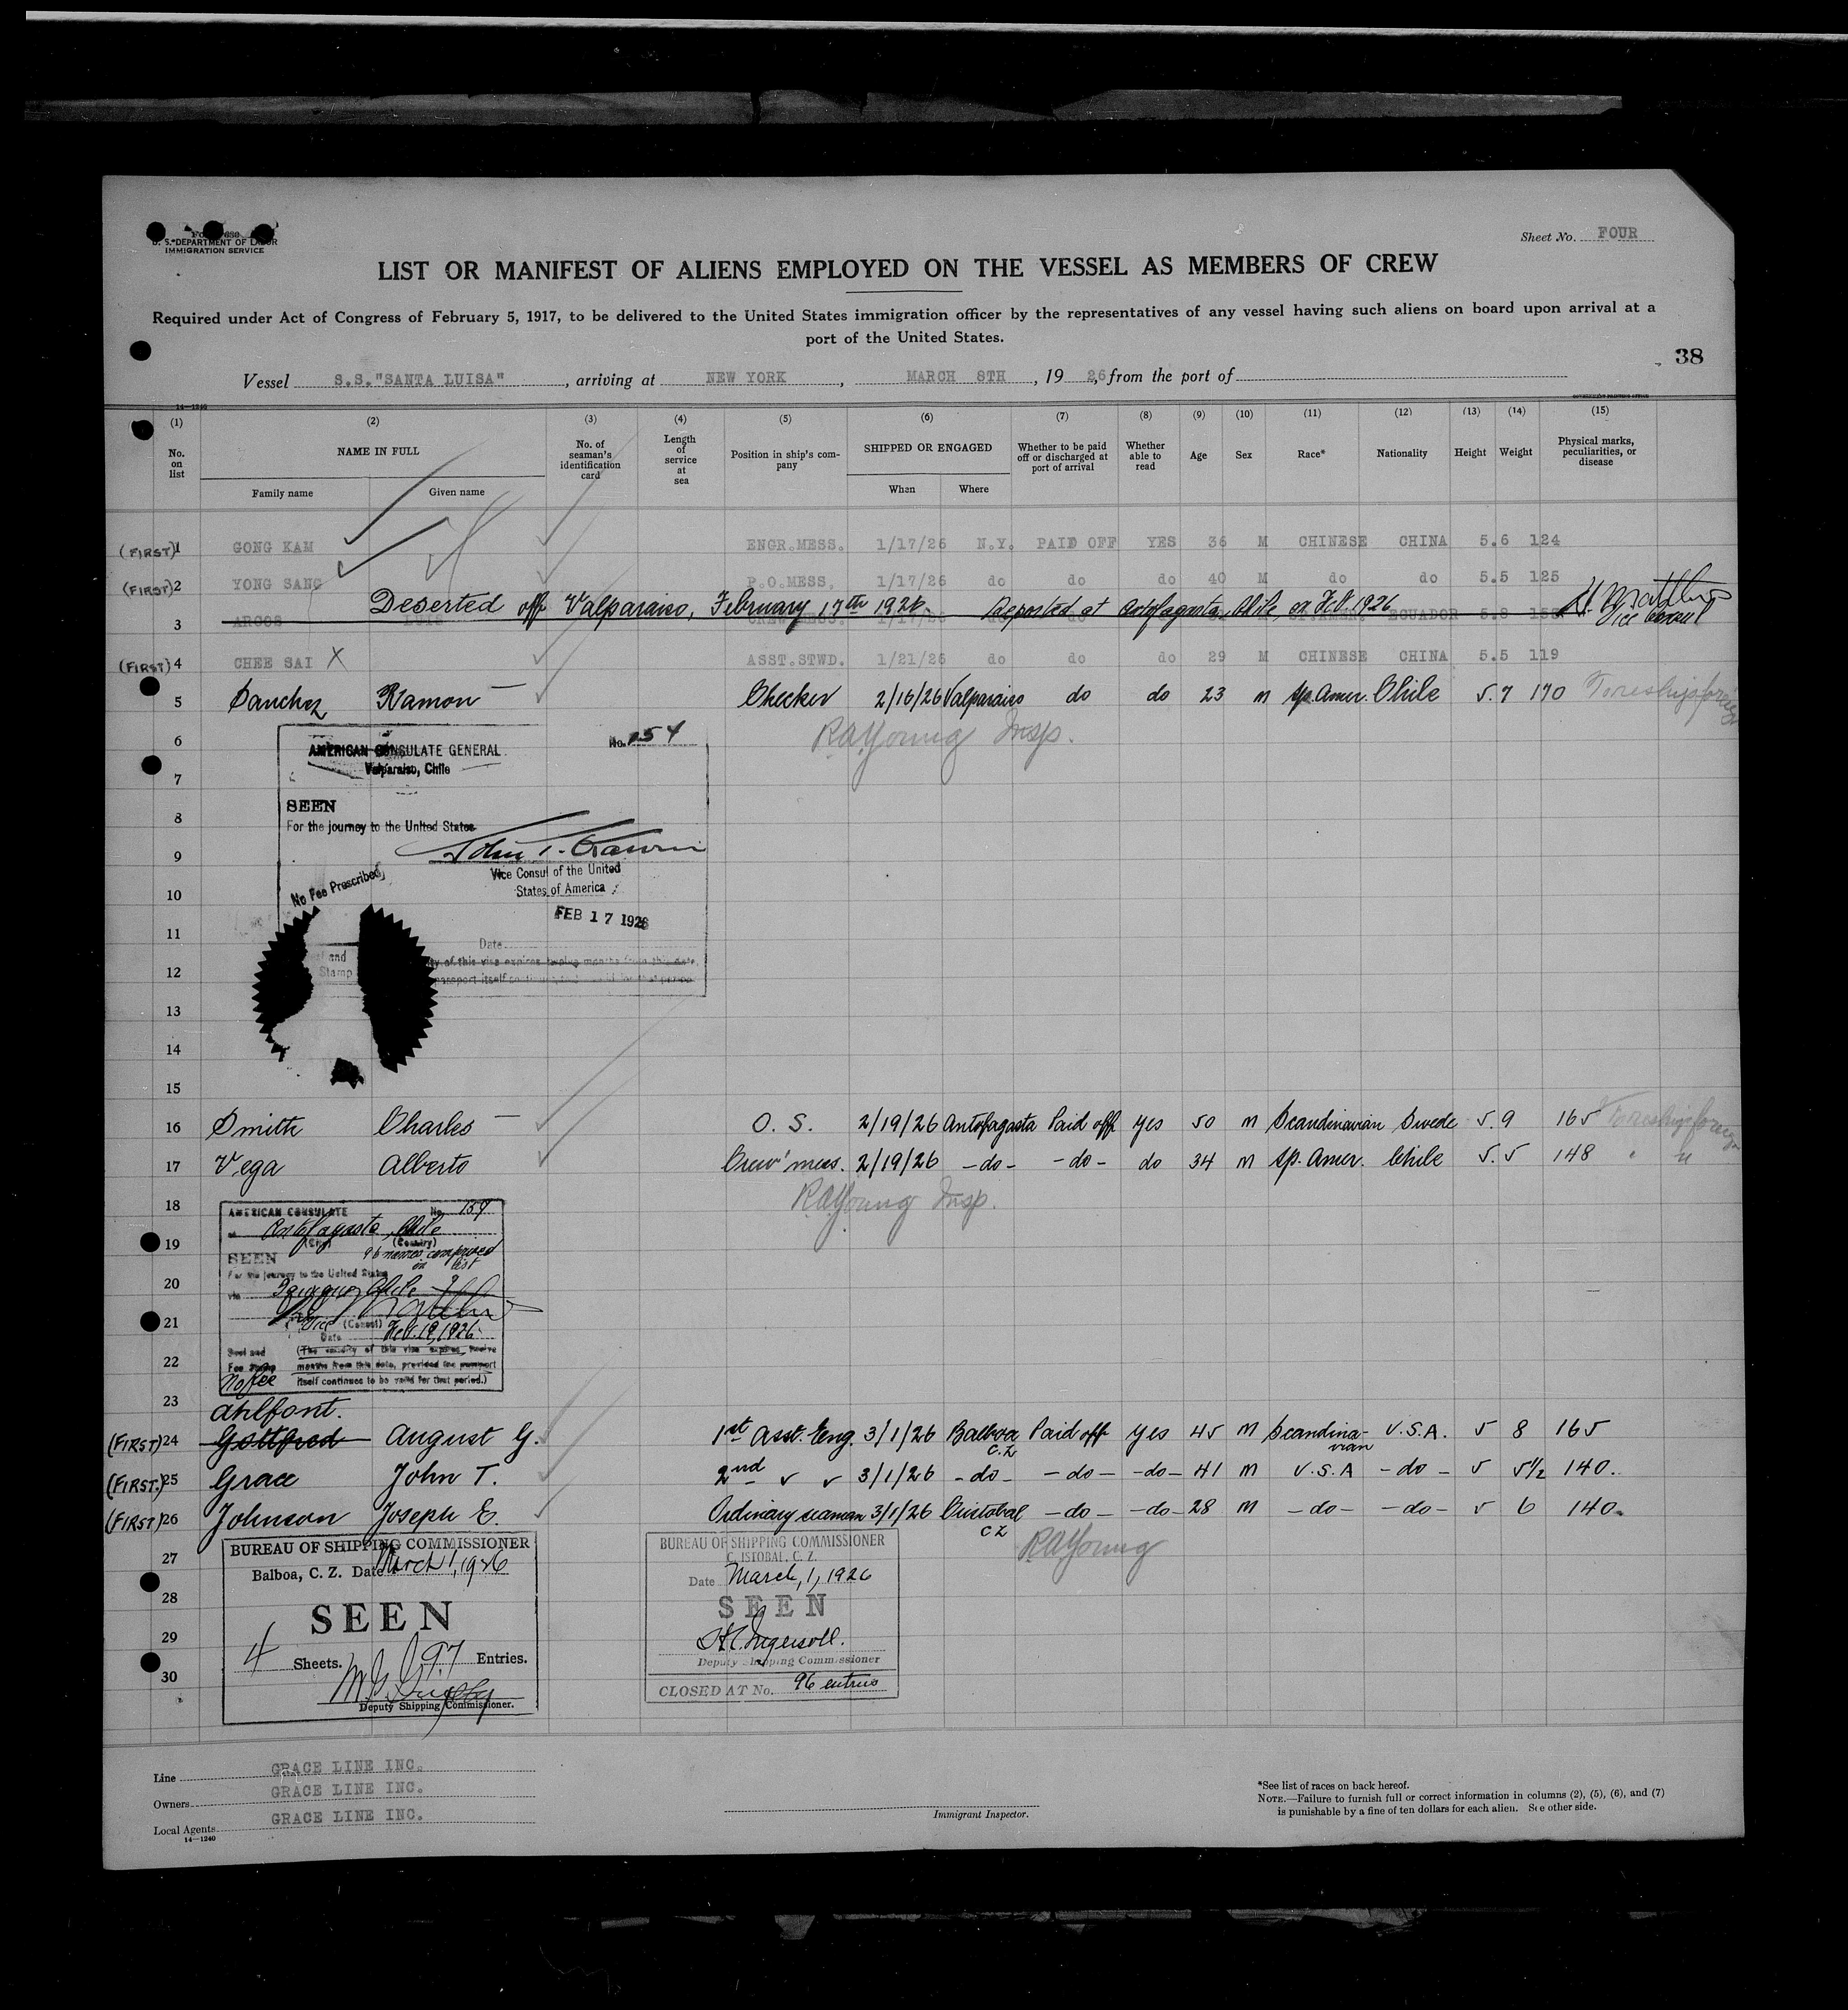 U. S. DEPARTMENT OF LABOR
IMMIGRATION SERVICE
Sheet No. FOUR
LIST OR MANIFEST OF ALIENS EMPLOYED ON THE VESSEL AS MEMBERS OF CREW
Required under Act of Congress of February 5, 1917, to be delivered to the United States immigration officer by the representatives of any vessel having such aliens on board upon arrival at a
port of the United States.
38
Vessel S.S."SANTA LUISA", arriving at NEW YORK, MARCH 8TH, 1926, from the port of
14—1240
(1) (2) (3) (4) (5) (6) (7) (8) (9) (10) (11) (12) (13) (14) (15)
No. on list NAME IN FULL No. of seaman's identification card Length of service at sea Position in ship's company SHIPPED OR ENGAGED Whether to be paid off or discharged at port of arrival Whether able to read Age Sex Race* Nationality Height Weight Physical marks, peculiarities, or disease
Family name Given name When Where
(FIRST) 1 GONG KAM ENGR.MESS. 1/17/26 N.Y. PAID OFF YES 36 M CHINESE CHINA 5.6 124
(FIRST) 2 YONG SANG P.O.MESS. 1/17/26 do do do 40 M do do 5.5 125
Deserted off Valparaiso, February 17th 1926. Deported at Antofagasta, Chile, on Feb. 1926
Vice Consul
3 ARGOS LUIS CREW MESS. 1/17/26 do do SP.AMER. ECUADOR 5.8
(FIRST) 4 CHEE SAI X ASST.STWD. 1/21/26 do do do 29 M CHINESE CHINA 5.5 119
5 Sanchez Ramon Checker 2/16/26 Valparaiso do do 23 m Sp. Amer. Chile 5.7 170
6 RAYoung Insp.
AMERICAN CONSULATE GENERAL No. 154
Valparaiso, Chile
7
SEEN
8
For the journey to the United States
9
Vice Consul of the United
States of America
No Fee Prescribed
10
FEB 17 1926
11
Date
12
13
14
15
16 Smith Charles O. S. 2/19/26 Antofagasta Paid off yes 50 m Scandinavian Swede 5.9 165
17 Vega Alberto Crew mess. 2/19/26 -do- -do- do 34 m Sp. Amer. Chile 5.5 148
18 RAYoung Insp.
AMERICAN CONSULATE No. 159
at Antofagasta, Chile
(City) (Country)
19
SEEN 96 names comprised in list
For the journey to the United States
20
via Iquique, Chile
21
Vice (Consul)
Date Feb. 19, 1926
22
Seal and Fee Stamp (The validity of this visa expires twelve
months from this date, provided the passport
itself continues to be valid for that period.)
No fee
23
Ahlfont.
(FIRST) 24 Gottfred August G. 1st Asst. Eng. 3/1/26 Balboa C.Z. Paid off yes 45 M Scandinavian U.S.A. 5 8 165
(FIRST.) 25 Grace John T. 2nd ✓ ✓ 3/1/26 -do- -do- -do- 41 m U.S.A -do- 5 5½ 140.
(FIRST) 26 Johnson Joseph E. Ordinary seaman 3/1/26 Cristobal CZ -do- -do- 28 M -do- -do- 5 6 140.
27 RAYoung
BUREAU OF SHIPPING COMMISSIONER
Balboa, C. Z. Date March 1, 1926
28
SEEN
29
4 Sheets. 97 Entries.
30
Deputy Shipping Commissioner.
BUREAU OF SHIPPING COMMISSIONER
CRISTOBAL, C. Z.
Date March, 1, 1926
SEEN
H.C. Ingersoll.
Deputy Shipping Commissioner
CLOSED AT No. 96 entries
Line GRACE LINE INC.
Owners GRACE LINE INC.
Local Agents GRACE LINE INC.
14—1240
Immigrant Inspector.
*See list of races on back hereof.
NOTE.—Failure to furnish full or correct information in columns (2), (5), (6), and (7)
is punishable by a fine of ten dollars for each alien. See other side.